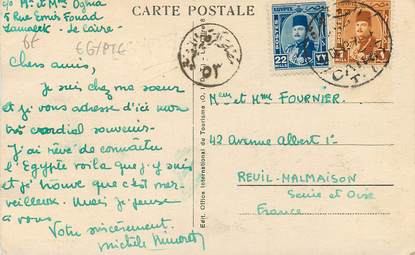 CARTE POSTALE
c/o Mr et Mme Oghia
5 Rue Emir Fouad
Zamalek - Le Caire -
EGYPTE
Chers amis,
Je suis chez ma sœur
et je vous adresse d'ici mon
très cordial souvenir.
J'ai rêvé de connaître
l'Egypte voila que j'y suis
et je trouve que c'est mer-
veilleux. Mais je pense
à vous.
Votre sincèrement.
Michèle
Edit. Office International de Tourisme (O. I.
EGYPTE
POSTES
22
٢٢
EGYPTE
1
CAIRO
٥٣
Meur et Mme FOURNIER.
42 Avenue Albert 1er
REUIL-MALMAISON
Seine et Oise
France